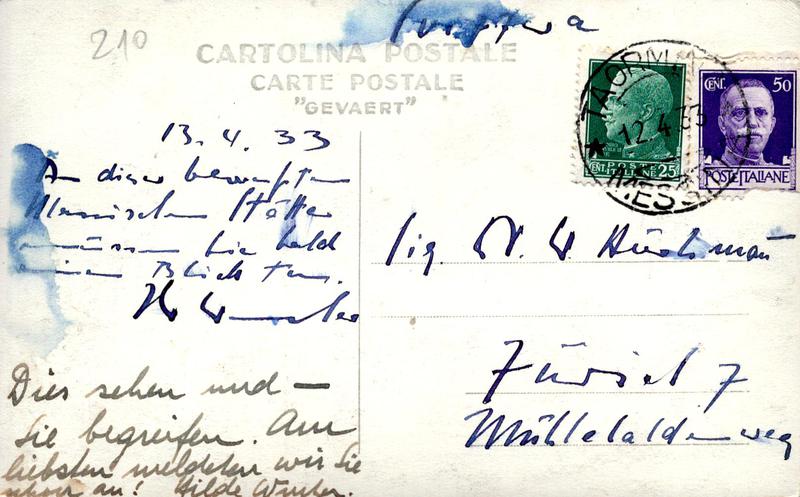 210
Svizzera
CARTOLINA POSTALE
CARTE POSTALE
"GEVAERT"
TAORMINA
12.4.33
MESSINA
CENT. POSTE ITALIANE 25
CENT. 50
POSTE ITALIANE
13.4.33
An dieser
klassischen Stätte
müssen Sie bald
einen Blick tun.
Sig. W. Hürlimann
Zürich 7
Mühlehaldenweg
Dies sehen und —
Sie begreifen. Am
liebsten meldeten wir Sie
schon an! Hilde